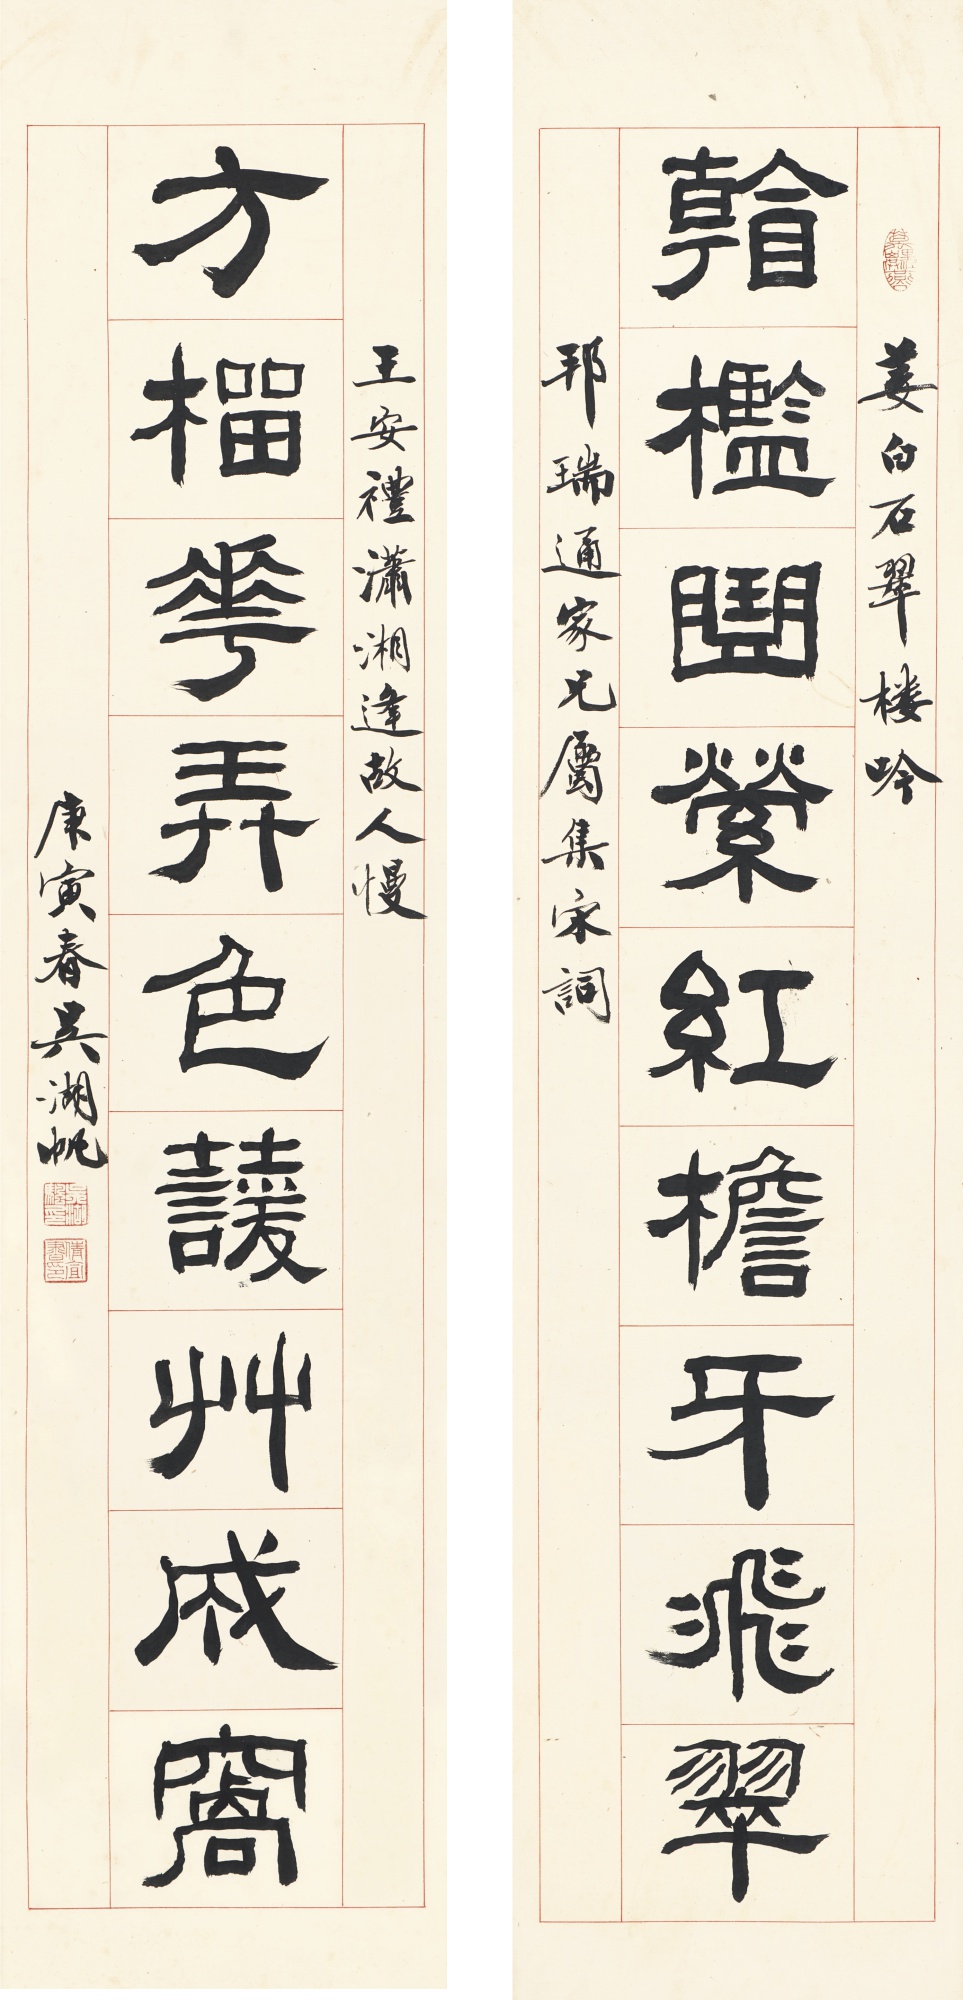 姜白石翠楼吟
𥉫檻曲縈紅檐牙飛翠
邦瑞通家兄屬集宋詞
王安禮瀟湘逢故人慢
方榴華弄色蘐艸成窩
庚寅春吴湖帆